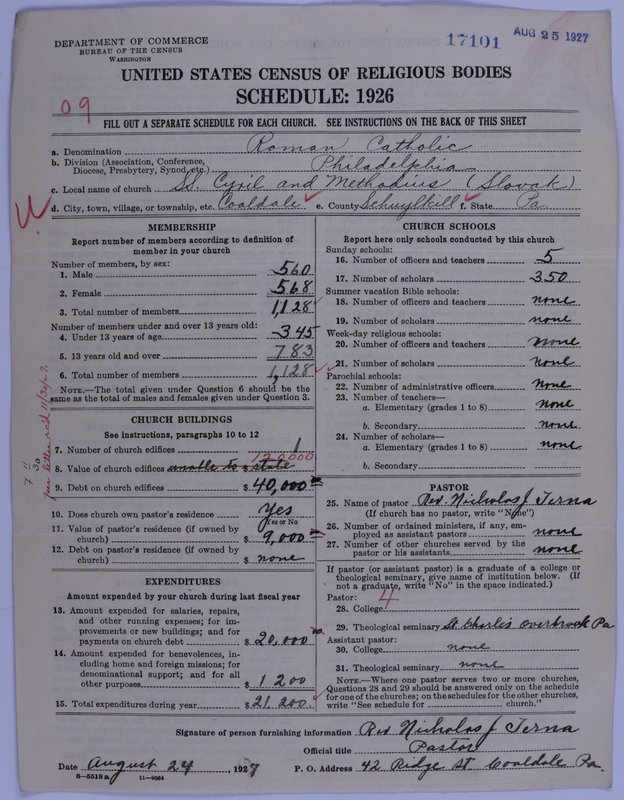 DEPARTMENT OF COMMERCE
BUREAU OF THE CENSUS
WASHINGTON
17101
AUG 25 1927
UNITED STATES CENSUS OF RELIGIOUS BODIES
SCHEDULE: 1926
09
FILL OUT A SEPARATE SCHEDULE FOR EACH CHURCH. SEE INSTRUCTIONS ON THE BACK OF THIS SHEET
a. Denomination Roman Catholic
b. Division (Association, Conference, Diocese, Presbytery, Synod, etc.) Philadelphia
c. Local name of church SS. Cyril and Methodius (Slovak)
d. City, town, village, or township, etc. Coaldale e. County Schuylkill f. State Pa.
MEMBERSHIP
Report number of members according to definition of
member in your church
Number of members, by sex:
1. Male 560
2. Female 568
3. Total number of members 1,128
Number of members under and over 13 years old:
4. Under 13 years of age 345
5. 13 years old and over 783
6. Total number of members 1,128
NOTE.—The total given under Question 6 should be the
same as the total of males and females given under Question 3.
CHURCH BUILDINGS
See instructions, paragraphs 10 to 12
7. Number of church edifices 1
120,000
8. Value of church edifices unable to state
9. Debt on church edifices $ 40,000
10. Does church own pastor's residence Yes
Yes or No
11. Value of pastor's residence (if owned by
church) $ 9,000
12. Debt on pastor's residence (if owned by
church) $ none
EXPENDITURES
Amount expended by your church during last fiscal year
13. Amount expended for salaries, repairs,
and other running expenses; for im-
provements or new buildings; and for
payments on church debt $ 20,000
14. Amount expended for benevolences, in-
cluding home and foreign missions; for
denominational support; and for all
other purposes $ 1200
15. Total expenditures during year $ 21,200
CHURCH SCHOOLS
Report here only schools conducted by this church
Sunday schools:
16. Number of officers and teachers 5
17. Number of scholars 350
Summer vacation Bible schools:
18. Number of officers and teachers none
19. Number of scholars none
Week-day religious schools:
20. Number of officers and teachers none
21. Number of scholars none
Parochial schools:
22. Number of administrative officers none
23. Number of teachers—
a. Elementary (grades 1 to 8) none
b. Secondary none
24. Number of scholars—
a. Elementary (grades 1 to 8) none
b. Secondary
PASTOR
25. Name of pastor Rev. Nicholas J Terna
(If church has no pastor, write "None")
26. Number of ordained ministers, if any, em-
ployed as assistant pastors none
27. Number of other churches served by the
pastor or his assistants none
If pastor (or assistant pastor) is a graduate of a college or
theological seminary, give name of institution below. (If
not a graduate, write "No" in the space indicated.)
Pastor:
4
28. College
29. Theological seminary St Charles Overbrook Pa
Assistant pastor:
30. College none
31. Theological seminary none
NOTE.—Where one pastor serves two or more churches,
Questions 28 and 29 should be answered only on the schedule
for one of the churches; on the schedules for the other churches,
write "See schedule for church."
Signature of person furnishing information Rev Nicholas J Terna
Official title Pastor
Date August 24, 1927 P. O. Address 42 Ridge St. Coaldale Pa.
6—5518a 11—9054